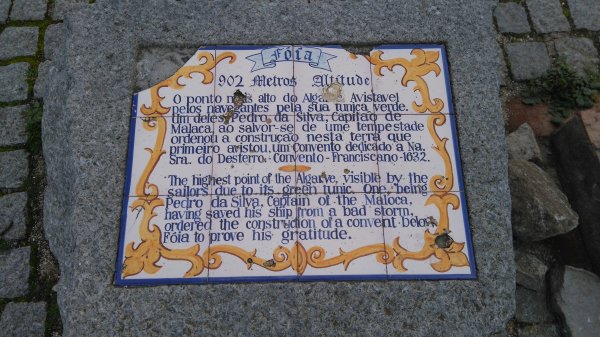 Fóia
902 Metros Altitude
O ponto mais alto do Algarve Avistavel
pelos navegantes pela sua tunica verde.
Um deles Pedro da Silva, Capitão de
Malaca, ao salvor-se de ume tempestade
ordenou a construção nesta terra que
primeiro avistou, um Convento dedicado a Na.
Sra. do Desterro - Convento - Franciscano - 1632.
The highest point of the Algarve, visible by the
sailors due to its green tunic. One, being
Pedro da Silva, Captain of the Maloca,
having saved his ship from a bad storm,
ordered the construdion of a convent below
Fóia to prove his gratitude.